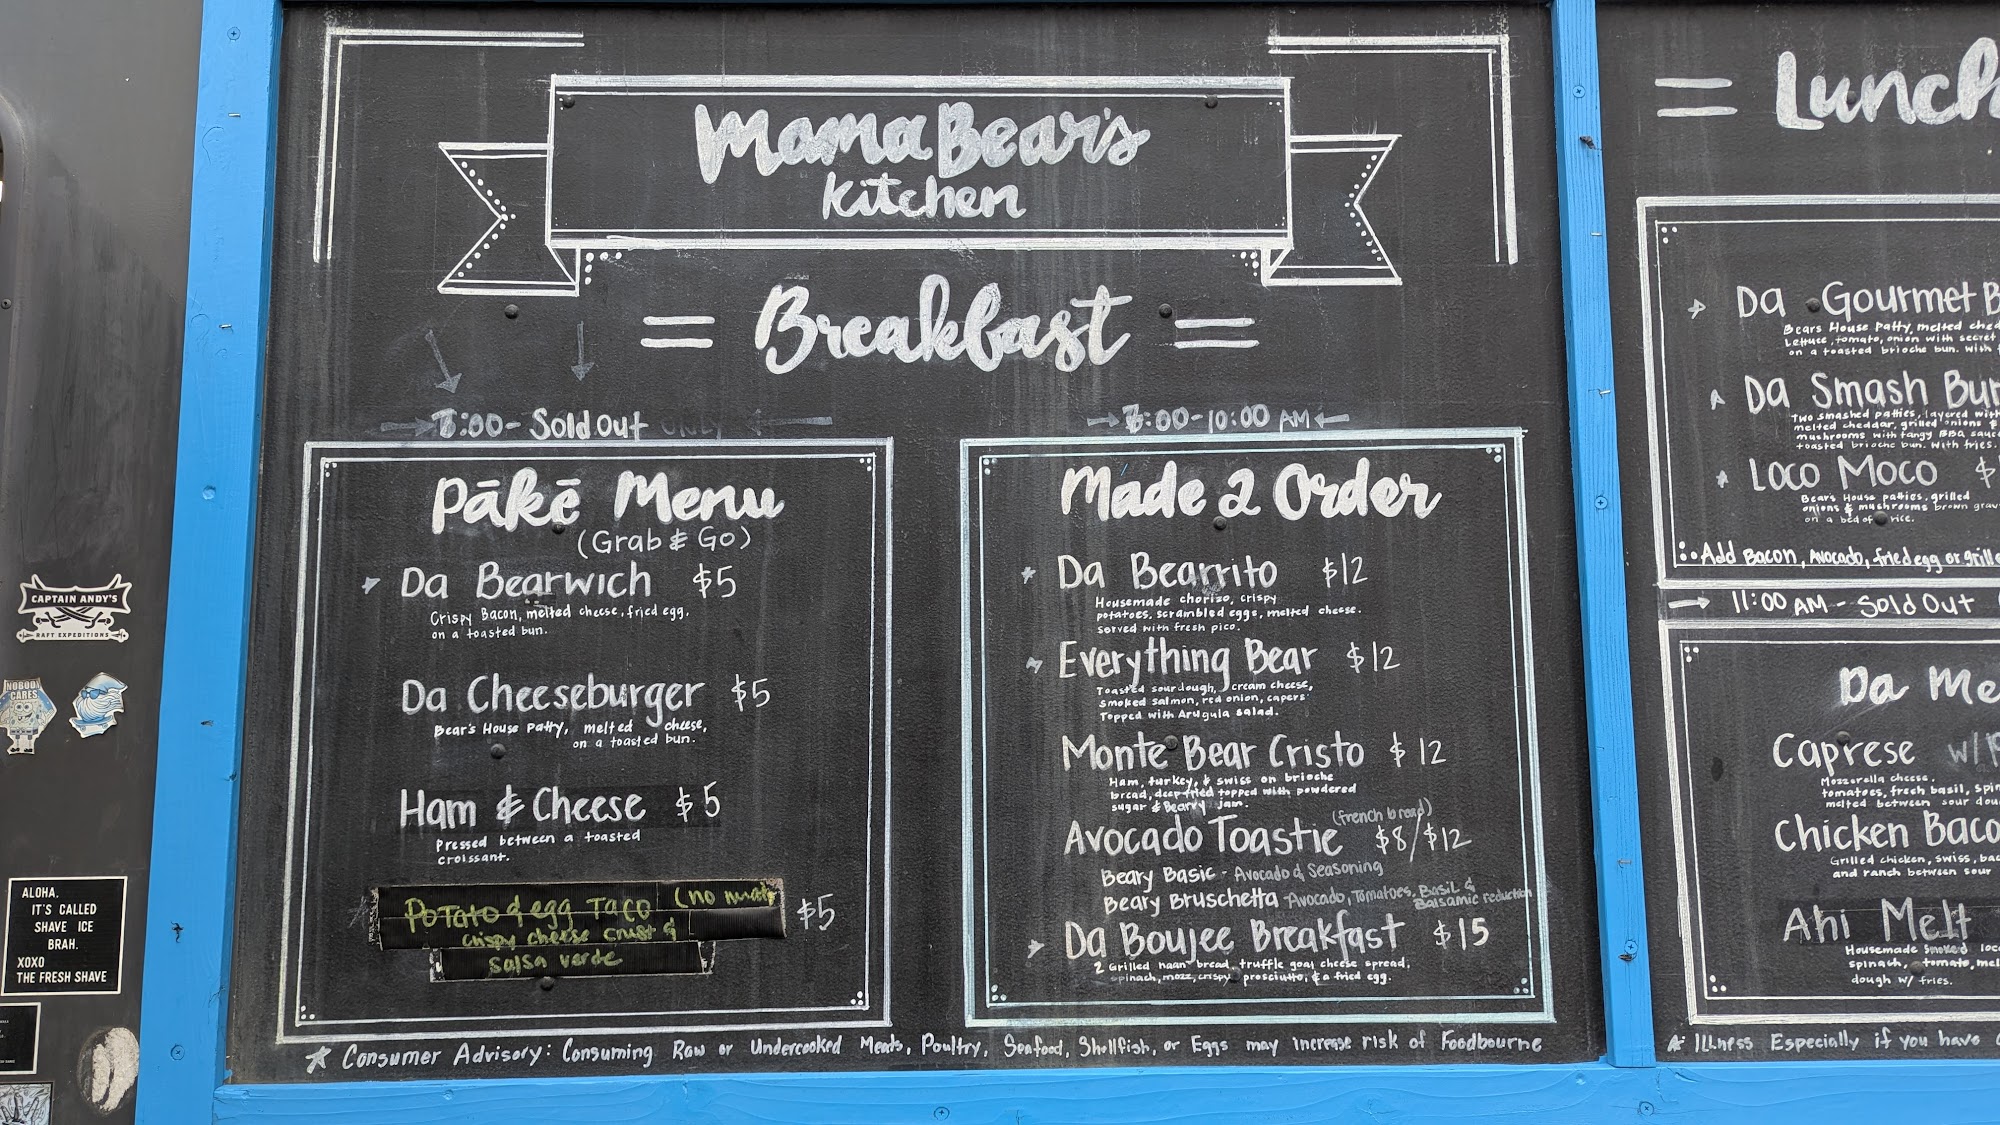 Mama Bear's
Kitchen
= Breakfast =
:00 - Sold Out ONLY
Pākē Menu
(Grab & Go)
Da Bearwich $5
Crispy Bacon, melted cheese, fried egg,
on a toasted bun.
Da Cheeseburger $5
Bear's House Patty, melted cheese,
on a toasted bun.
Ham & Cheese $5
Pressed between a toasted
croissant.
Potato & egg Taco (no meat) $5
crispy cheese crust &
salsa verde
:00-10:00 AM
Made 2 Order
Da Bearrito $12
Housemade chorizo, crispy
potatoes, scrambled eggs, melted cheese.
served with fresh pico.
Everything Bear $12
Toasted sourdough, cream cheese,
smoked salmon, red onion, capers
Topped with Arugula salad.
Monte Bear Cristo $12
Ham, turkey, & swiss on brioche
bread, deep fried topped with powdered
sugar & Bearry jam.
(french bread)
Avocado Toastie $8/$12
Beary Basic - Avocado & Seasoning
Beary Bruschetta - Avocado, Tomatoes, Basil &
Balsamic reduction
Da Boujee Breakfast $15
2 Grilled naan bread, truffle goat cheese spread,
spinach, mozz, crispy prosciutto, & a fried egg.
Consumer Advisory: Consuming Raw or Undercooked Meats, Poultry, Seafood, Shellfish, or Eggs may increase risk of Foodbourne
= Lunch
Da Gourmet B
Bears House Patty, melted ched
Lettuce, tomato, onion with secret
on a toasted brioche bun. With f
Da Smash Bur
Two smashed patties, layered with
melted cheddar, grilled onions &
mushrooms with tangy BBQ sauce
toasted brioche bun. With fries.
Loco Moco $
Bears House patties, grilled
onions & mushrooms brown grav
on a bed of rice.
Add Bacon, Avocado, fried egg or grille
11:00 AM - Sold Out
Da Me
Caprese w/
Mozzarella cheese,
tomatoes, fresh basil, spin
melted between sour dou
Chicken Baco
Grilled chicken, swiss, bac
and ranch between sour
Ahi Melt
Housemade Smoked loc
spinach, tomato, mel
dough w/ fries.
Illness Especially if you have
CAPTAIN ANDY'S
RAFT EXPEDITIONS
NOBODY
CARES
ALOHA.
IT'S CALLED
SHAVE ICE
BRAH.
XOXO
THE FRESH SHAVE